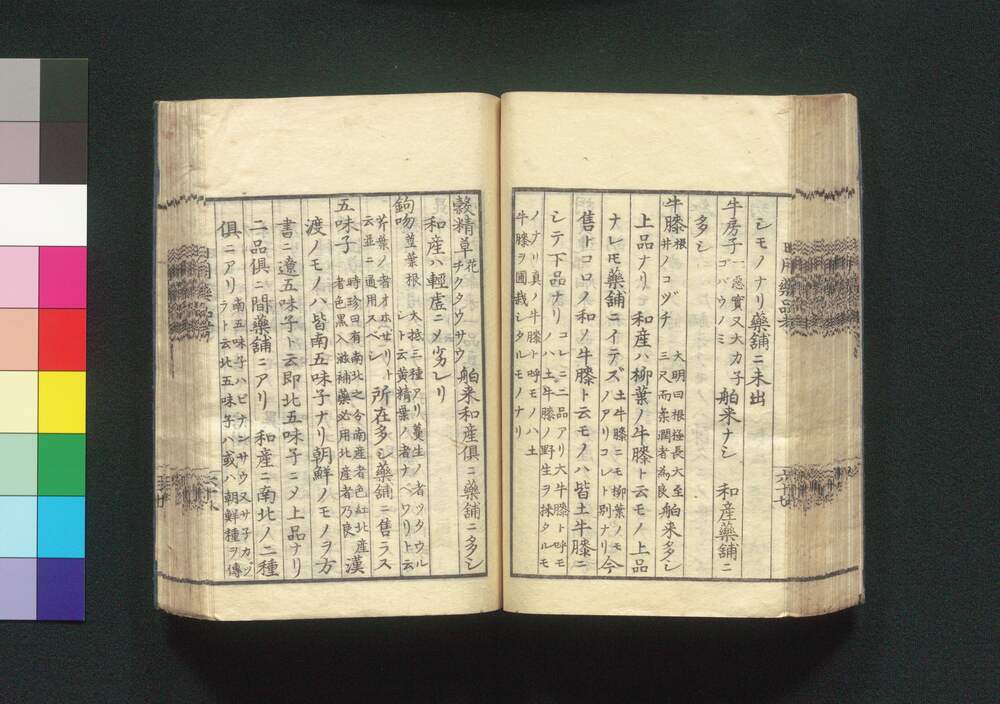 シモノナリ藥舗ニ未出
牛房子 一惡實又大力子
ゴバウノミ
舶来ナシ 和産藥舗ニ
多シ
牛膝 根
井ノコヅチ
大明曰根極長大至
三尺而柔潤者為良
舶来多シ
上品ナリ 和産ハ柳葉ノ牛膝ト云モノ上品
ナレ𪜈藥舗ニイテズ 土牛膝ニモ柳葉ノモ
ノアリコレト別ナリ
今
售トコロノ和ノ牛膝ト云モノハ皆土牛膝ニ
シテ下品ナリ コレニ二品アリ大牛膝ト呼モ
ノハ土牛膝ノ野生ヲ採タルモ
ノナリ真ノ牛膝ト呼モノハ土
牛膝ヲ圃栽シタルモノナリ
穀精草 花
チクタウサウ
舶来和産俱ニ藥舗ニ多シ
和産ハ輕虚ニメ劣レリ
鉤吻 莖葉根 大抵三種アリ蔓生ノ者ツタウル
シト云黄精葉ノ者ナベワリト云
芹葉ノ者オホゼリト
云並ニ通用スベシ
所在多シ藥舗ニ售ラス
五味子 時珍曰有南北之今南産者色紅北産
者色黒入滋補藥必用北産者乃良
漢
渡ノモノハ皆南五味子ナリ朝鮮ノモノヲ方
書ニ遼五味子ト云即北五味子ニメ上品ナリ
二品俱ニ間藥舗ニアリ 和産ニ南北ノ二種
俱ニアリ 南五味子ハビナンサウ又サナカヅ
ラト云北五味子ハ或ハ朝鮮種ヲ傳